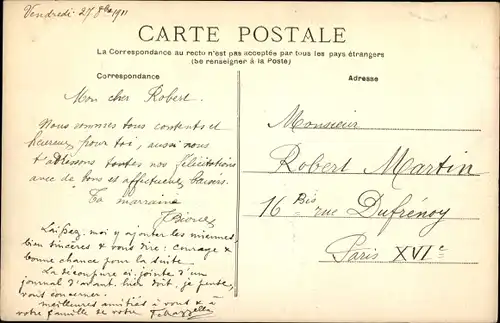 Vendredi 27 8bre 1911
CARTE POSTALE
La Correspondance au recto n'est pas acceptée par tous les pays étrangers
(Se renseigner à la Poste)
Correspondance
Adresse
Mon cher Robert.
Nous sommes tous contents et
heureux pour toi, aussi nous
t'adressons toutes nos félicitations
avec de bons et affectueux baisers.
Ta marraine
Laissez-moi y ajouter les miennes
bien sincères & vous dire: Courage &
bonne chance pour la suite.
La découpure ci-jointe d'un
journal d'avant-hier doit, je pense,
vous concerner.
meilleures amitiés à vous & à
votre famille de votre
Monsieur
Robert Martin
16 Bis rue Dufrénoy
Paris XVIe